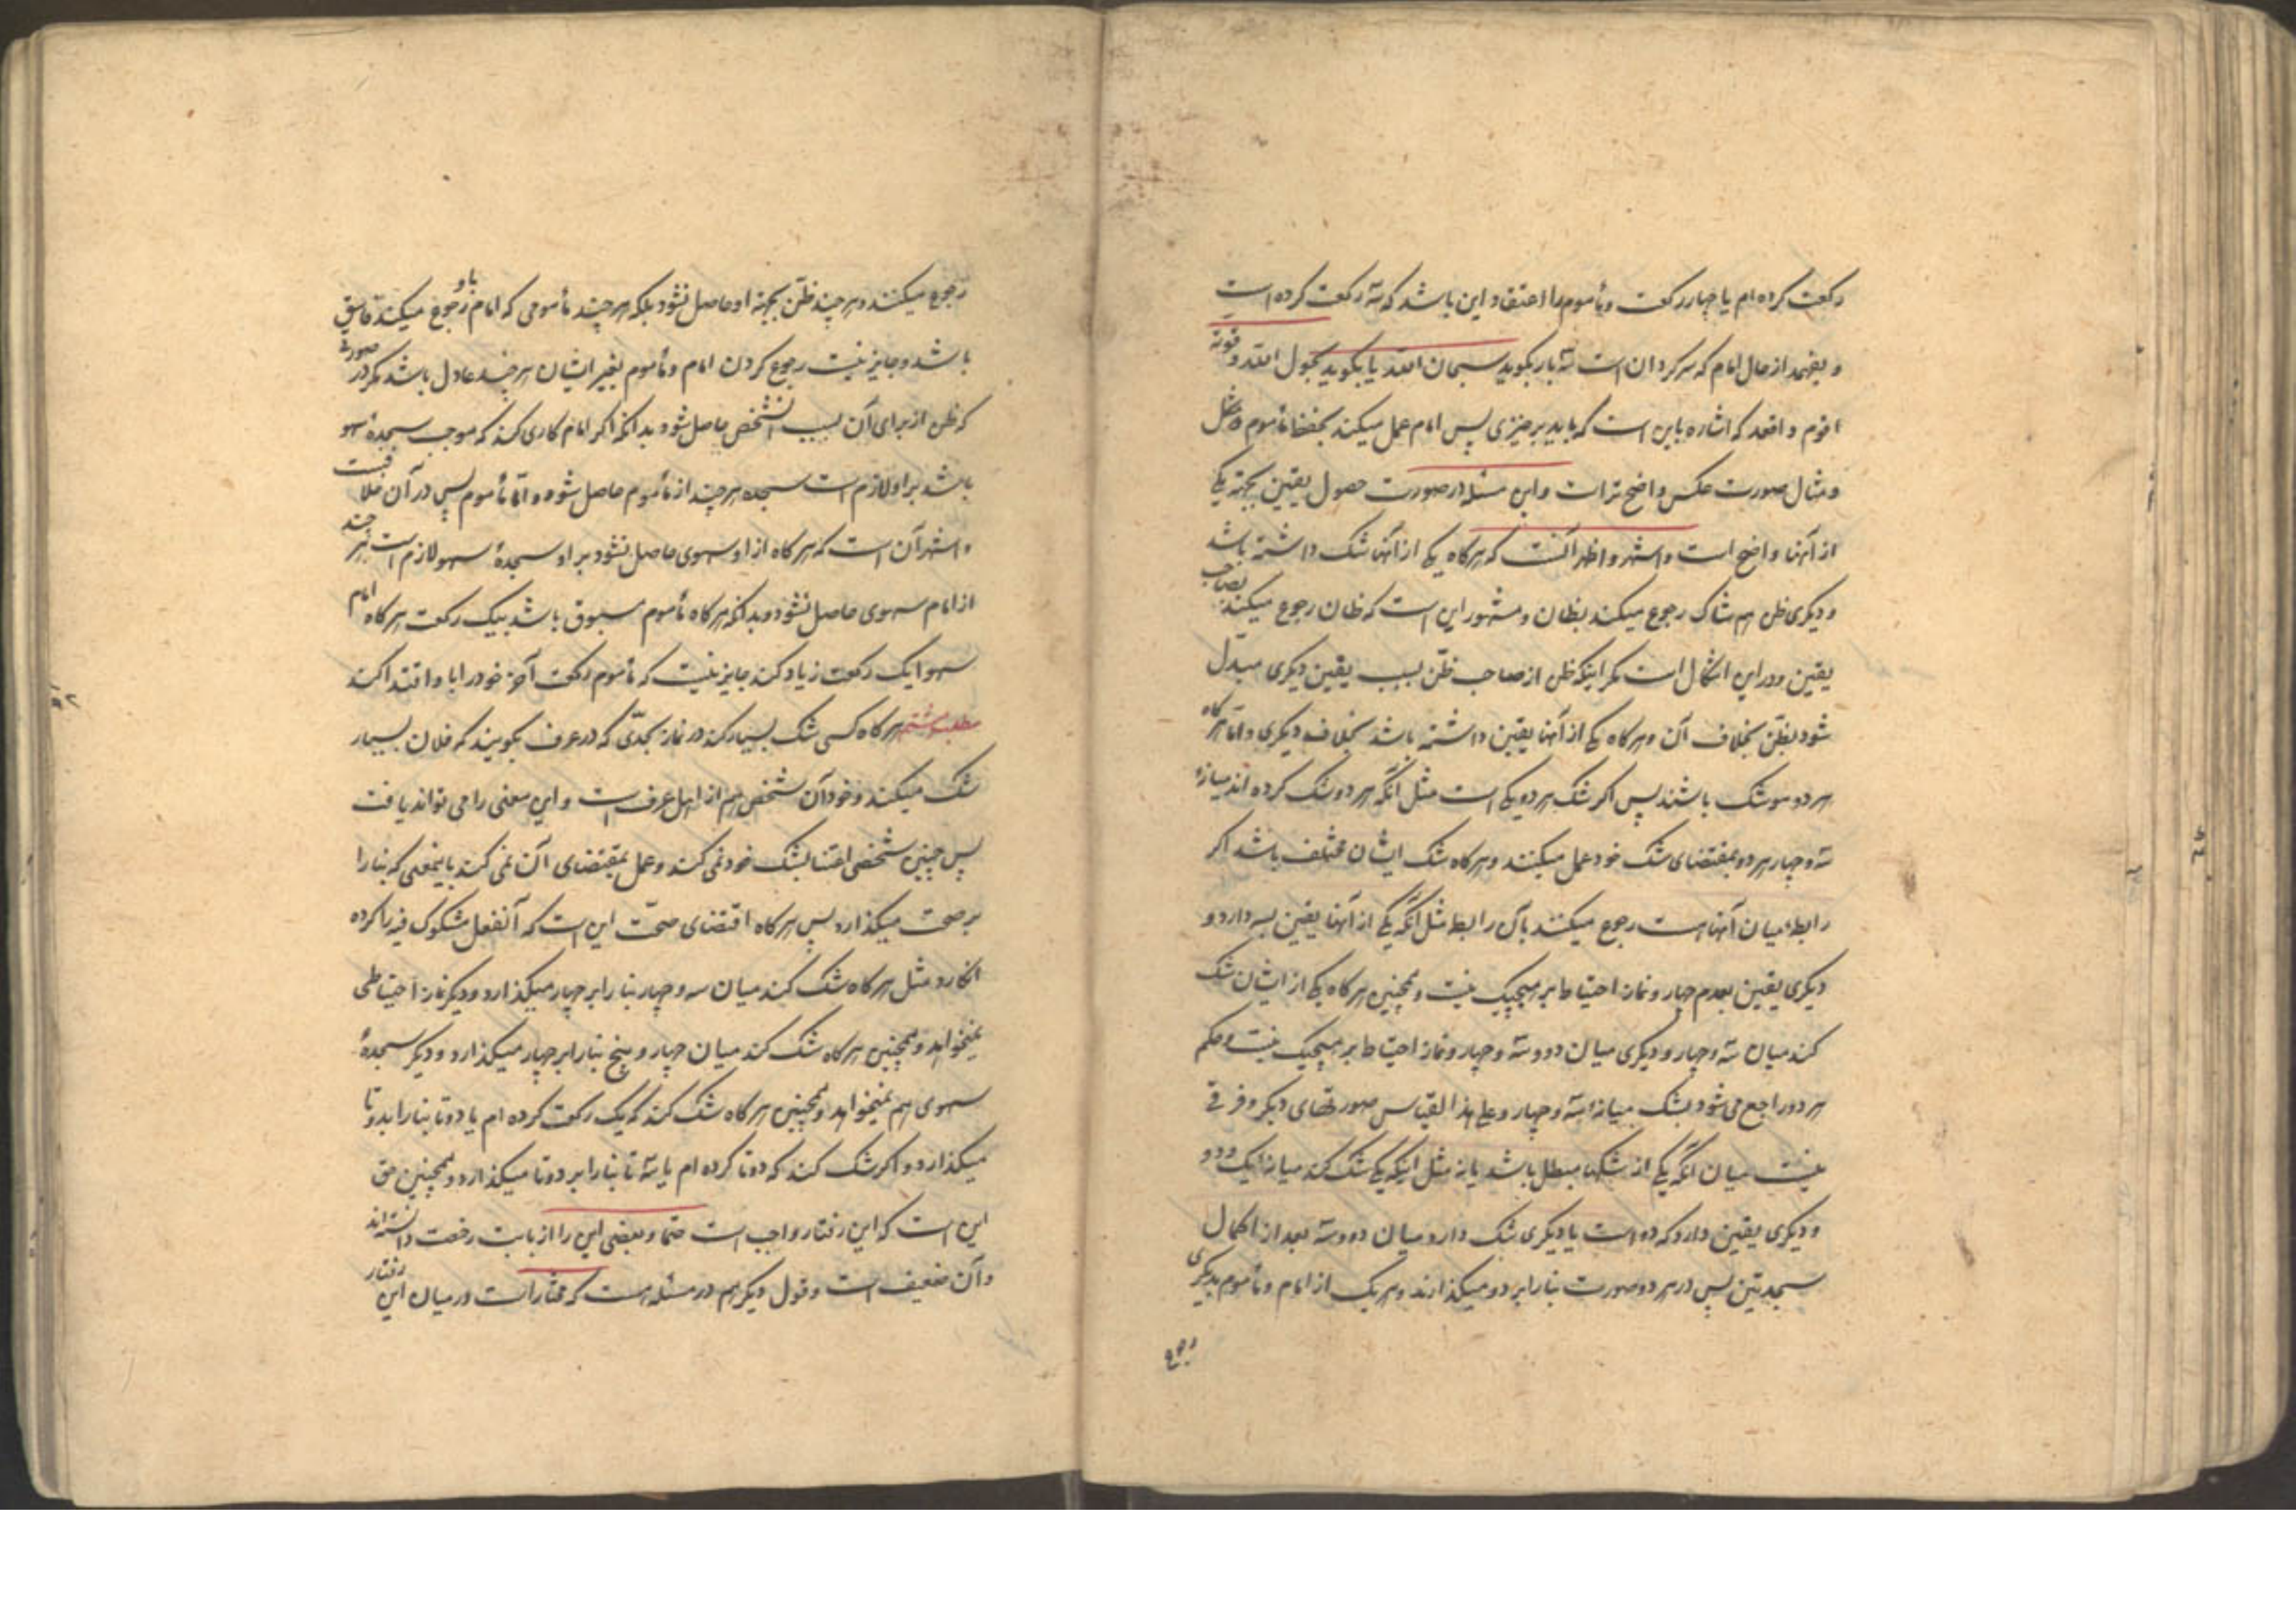 رکعت کرده ام یا چهار رکعت و مأموم را اعتقاد این باشد که سه رکعت کرده است
و بفهمد از حال امام که سرکردان است سه بار بکوید سبحان الله یا بکوید بحول الله و قوته
اقوم و اقعد که اشاره باین است که باید برخیزی پس امام عمل میکند بحفظ مأموم
و مثال صورت عکس واضح تر است و این مسئله در صورت حصول یقین بجهة یکی
از آنها واضح است و اشهر و اظهر آنست که هرکاه یکی از آنها شک داشته باشد
و دیکری ظن هم شاک رجوع میکند بظان و مشهور این است که ظان رجوع میکند بصاحب
یقین و در این اشکال است مکر اینکه ظن از صاحب ظن بسبب یقین دیکری مبدل
شود بظن بخلاف آن و هرکاه یکی از آنها یقین داشته باشد بخلاف دیکری و اما هرکاه
هر دو شک باشند پس اکر شک هر دو یکی است مثل آنکه هر دو شک کرده اند میانه
سه و چهار هر دو بمقتضای شک خود عمل میکنند و هرکاه شک ایشان مختلف باشد اکر
رابطه میان آنها است رجوع میکنند بآن رابطه مثل آنکه یکی از آنها یقین بسه دارد و
دیکری یقین بعدم چهار و نماز احتیاط بر هیچیک نیست و همچنین هرکاه یکی از ایشان شک
کند میان سه و چهار و دیکری میان دو و سه و چهار و نماز احتیاط بر هیچیک نیست و حکم
هر دو راجع می شود بشک میانه سه و چهار و علی هذا القیاس صورتهای دیکر و فرقی
نیست میان آنکه یکی از شکها مبطل باشد یا نه مثل اینکه یکی شک کند میانه یک و دو
و دیکری یقین دارد که دو است یا دیکری شک دارد میان دو و سه بعد از اکمال
سجدتین پس در هر دو صورت بنا را بر دو میکذارند و هر یک از امام و مأموم بدیکری
رجوع
رجوع میکنند و هر چند ظن بجهة او حاصل نشود بلکه هر چند مأمومی که امام باو رجوع میکند فاسق
باشد و جایز نیست رجوع کردن امام و مأموم بغیر ایشان هر چند عادل باشد مکر در صورتی
که ظن از برای آن بسبب آنشخص حاصل شود بدانکه اکر امام کاری کند که موجب سجدهٔ سهو
باشد بر او لازم است سجده هر چند از مأموم حاصل نشود و اما مأموم پس در آن خلافست
و اشهر آن است که هرکاه از او سهوی حاصل نشود بر او سجدهٔ سهو لازم است هر چند
از امام سهوی حاصل نشود و بدانکه هرکاه مأموم مسبوق باشد بیک رکعت هرکاه امام
سهوا یک رکعت زیاد کند جایز نیست که مأموم رکعت آخر خود را با او اقتدا کند
مطلب هشتم هرکاه کسی شک بسیار کند در نماز بحدّی که در عرف بکویند که فلان بسیار
شک میکند و خود آن شخص هم از اهل عرف است و این معنی را می تواند یافت
پس چنین شخصی اعتنا بشک خود نمی کند و عمل بمقتضای آن نمی کند باینمعنی که بنا را
بر صحت میکذارد پس هرکاه اقتضای صحّت این است که آنفعل مشکوک فیه را کرده
انکارد مثل هرکاه شک کند میان سه و چهار بنا را بر چهار میکذارد و دیکر نماز احتیاطی
نمیخواهد و همچنین هرکاه شک کند میان چهار و پنج بنا را بر چهار میکذارد و دیکر سجدهٔ
سهوی هم نمیخواهد و همچنین هرکاه شک کند که یک رکعت کرده ام یا دوتا بنا را بدوتا
میکذارد و اکر شک کند که دوتا کرده ام یا سه تا بنا را بر دوتا میکذارد و همچنین حق
این است که این رفتار واجب است حتما و بعضی این را از بابت رخصت دانسته اند
و آن ضعیف است و قول دیکر هم در مسئله هست که مختار است در میان این رفتار